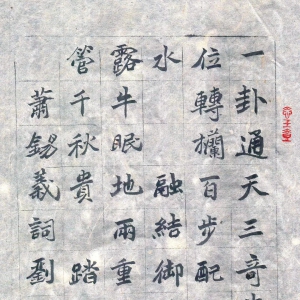 一卦通天三奇
位轉欄百步配
水 融結御
露牛眠地兩重
管千秋貴 踏
蕭錫義詞劉